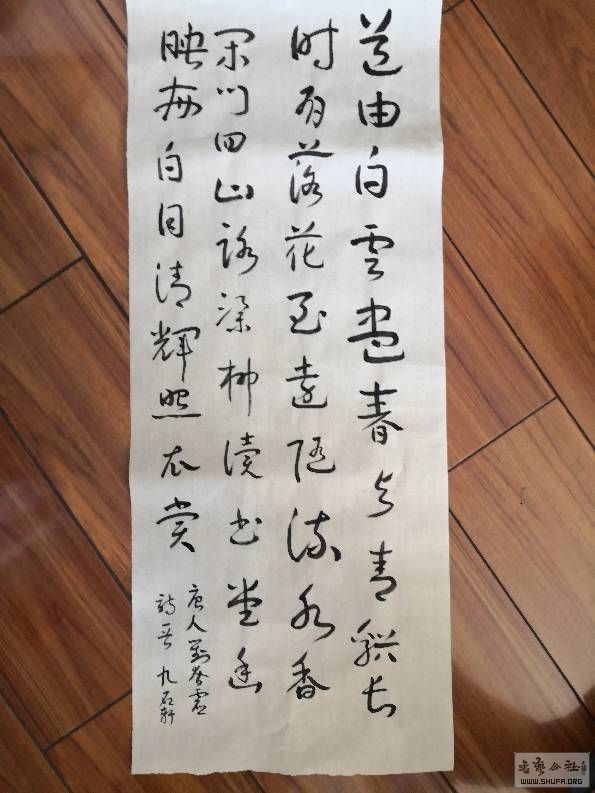 道由白雲盡春与青谿长
时有落花至遠随流水香
闲门向山路深柳读书堂幽
映每白日清輝照衣裳
唐人劉眘虚
詩 九石軒
书艺公社
WWW.SHUFA.ORG